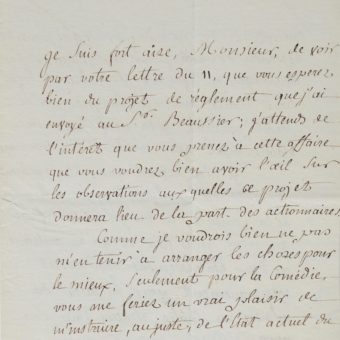 Je suis fort aise, Monsieur, de voir
par votre lettre du 11, que vous esperez
bien du projet de réglement que j'ai
envoyé au Sr. Beaussier; j'attends de
l'intérêt que vous prenez à cette affaire
que vous voudrez bien avoir l'œil sur
les observations aux quelles ce projet
donnera lieu de la part des actionnaires
Comme je voudrois bien ne pas
m'en tenir à arranger les choses pour
le mieux, seulement pour la Comédie,
vous me feriez un vrai plaisir de
m'instruire, au juste, de l'Etat actuel du